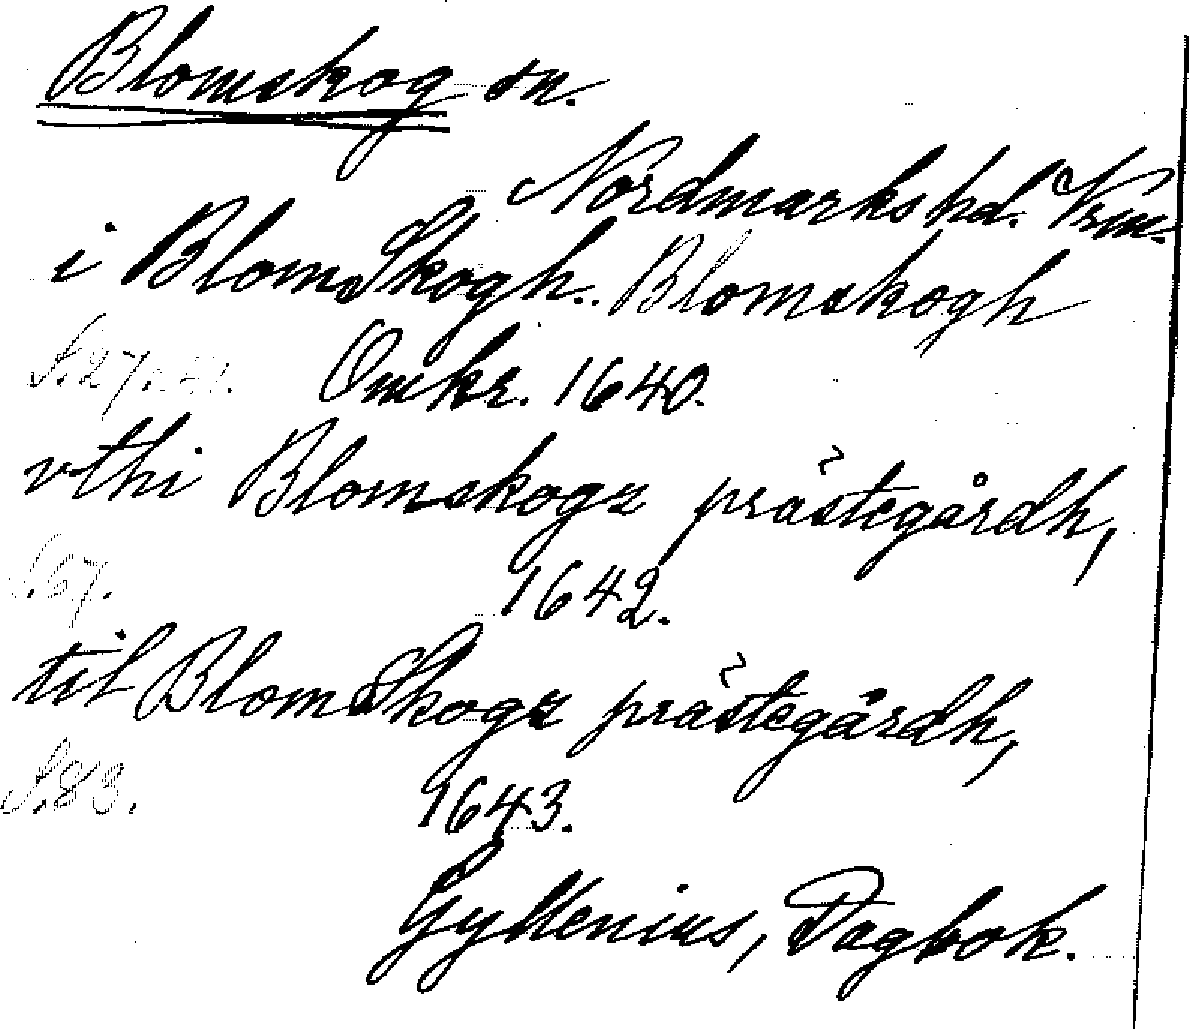 Blomskog sn.
Nordmarks hd. Vrm.
i BlomSkogh. Blomskogh
S. 27
Omkr. 1640.
vthi Blomskogz prästegårdh,
S. 57. 1642.
til BlomSkogz prästegårdh,
S. 83. 1643.
Gyllenius, Dagbok.